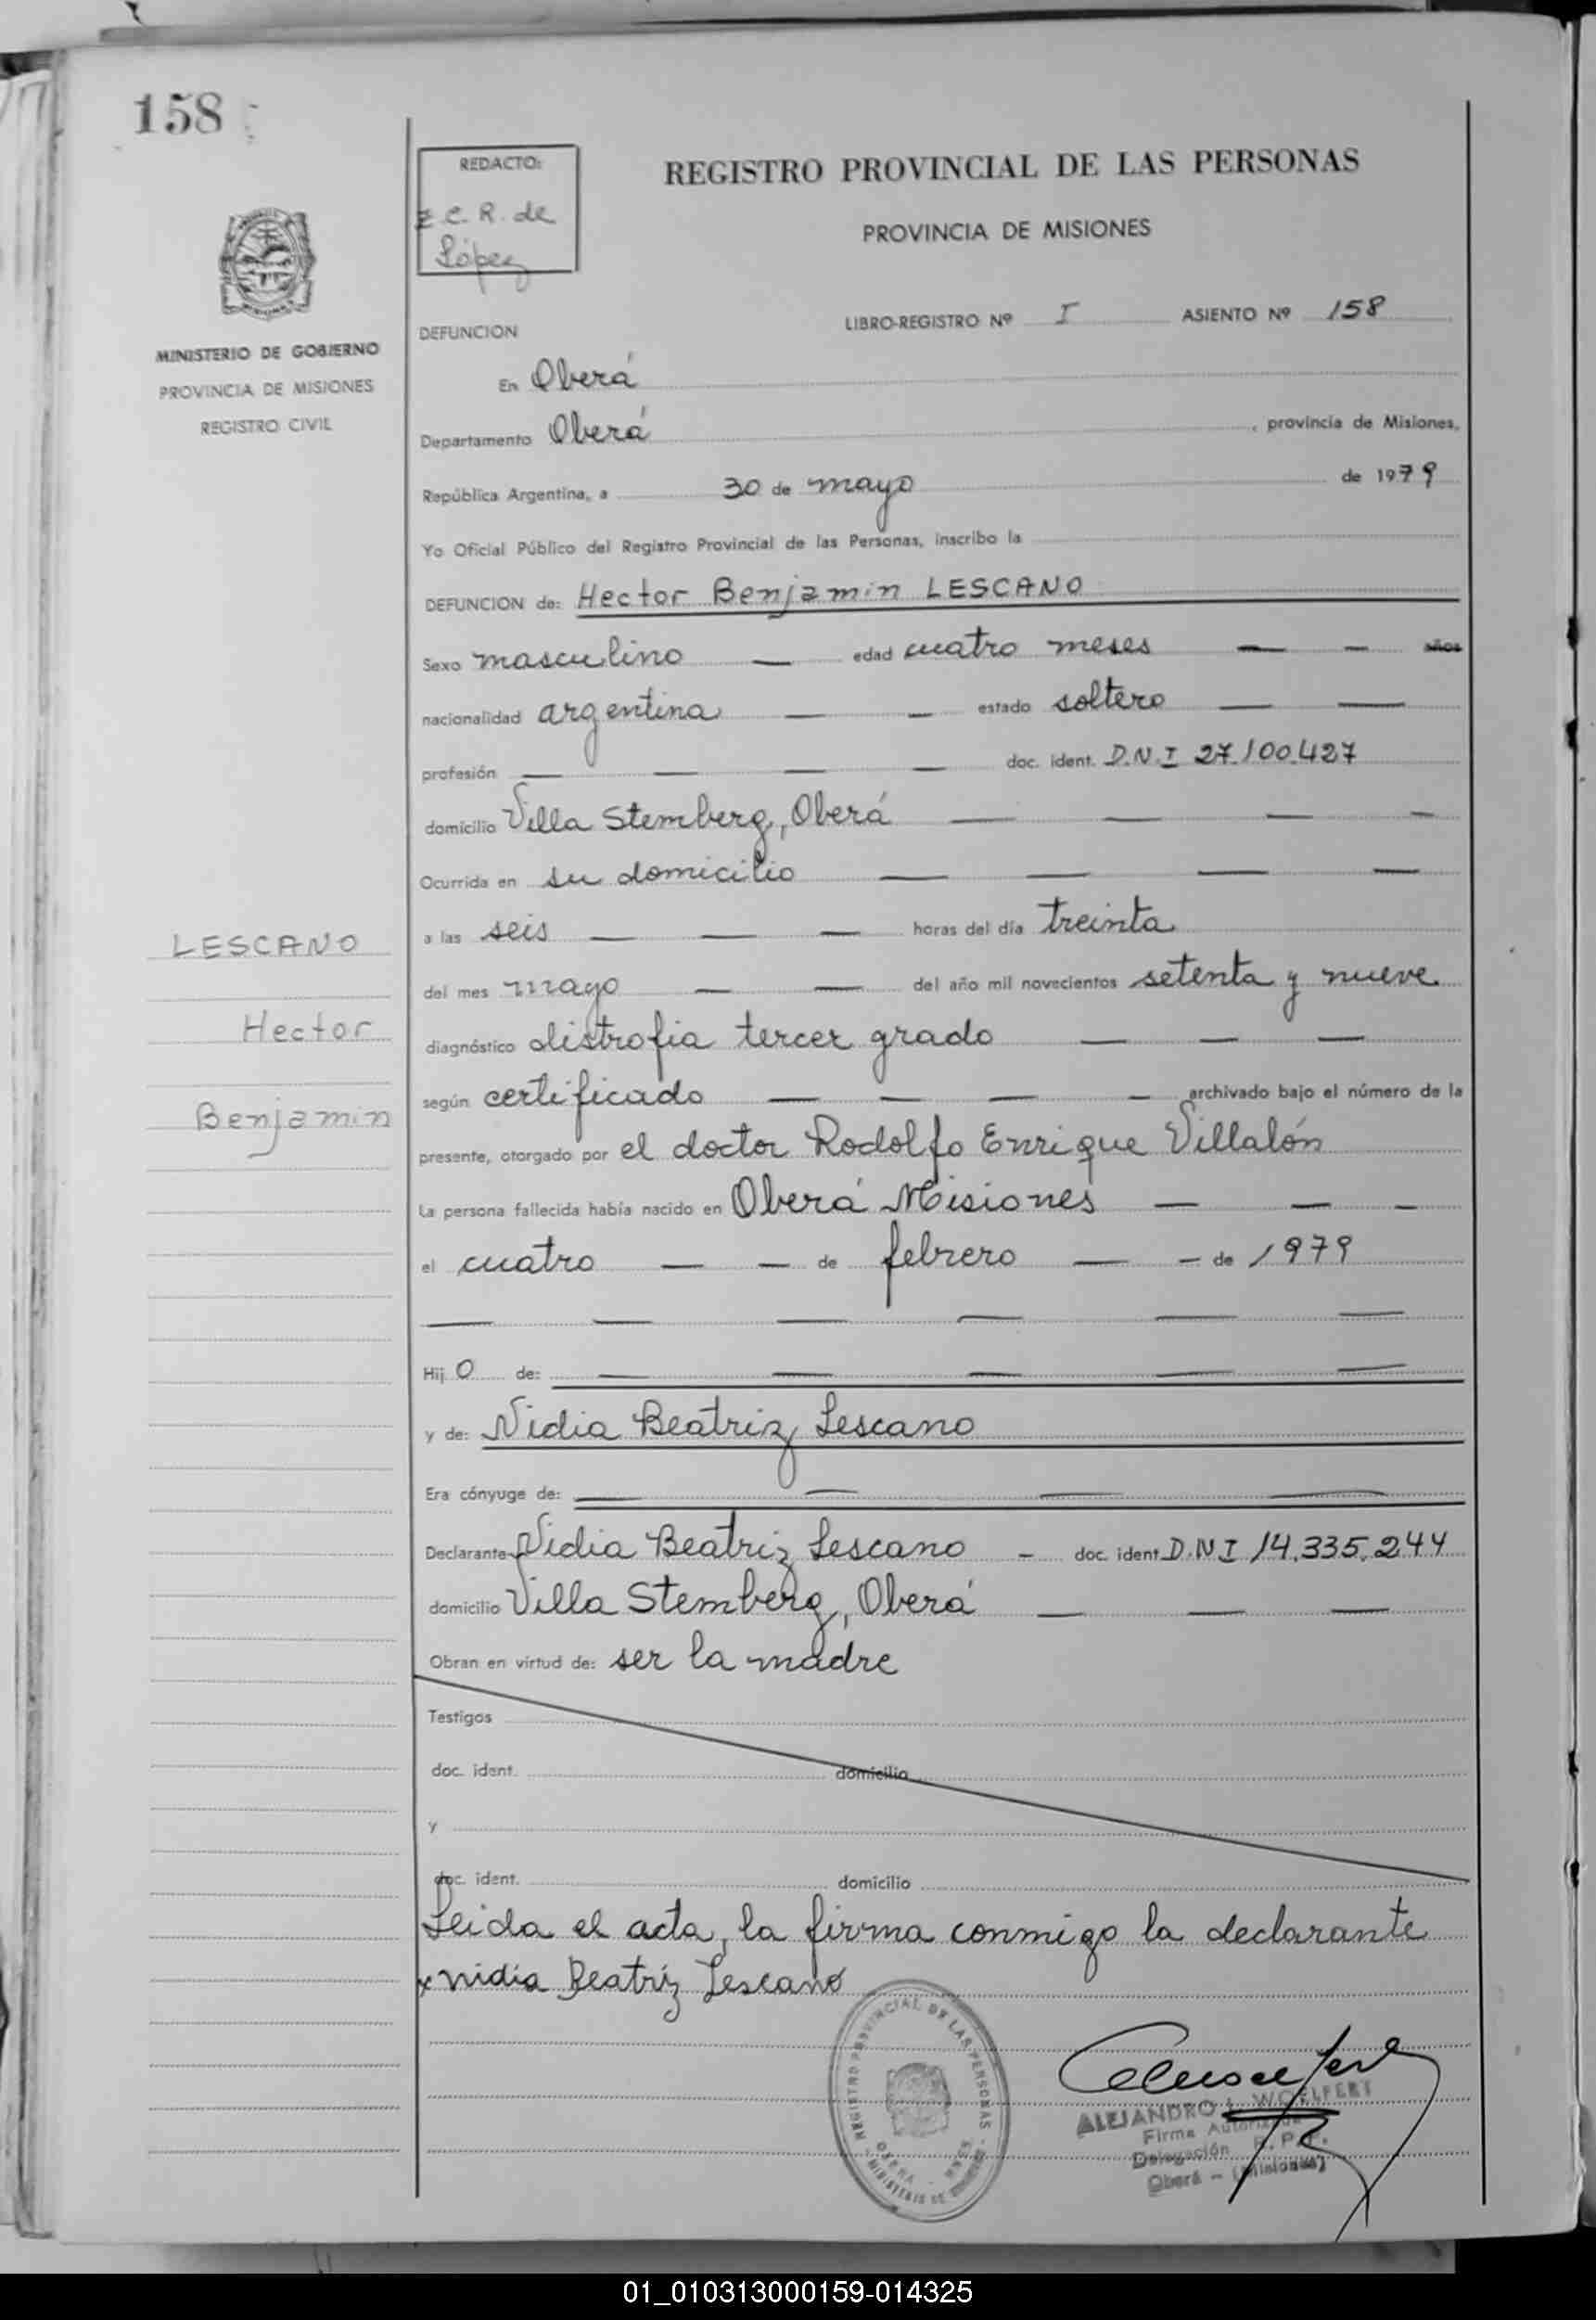 158
REDACTO:
E. C. R. de
López
REGISTRO PROVINCIAL DE LAS PERSONAS
PROVINCIA DE MISIONES
MINISTERIO DE GOBIERNO
PROVINCIA DE MISIONES
REGISTRO CIVIL
DEFUNCION
LIBRO-REGISTRO Nº I ASIENTO Nº 158
En Oberá
Departamento Oberá , provincia de Misiones,
República Argentina, a 30 de mayo de 1979
Yo Oficial Público del Registro Provincial de las Personas, inscribo la
DEFUNCION de: Hector Benjamin LESCANO
Sexo masculino — edad cuatro meses — — años
nacionalidad argentina — — estado soltero — —
profesión — — — — doc. ident. D.N.I 27.100.427
domicilio Villa Stemberg, Oberá — — — —
Ocurrida en su domicilio — — — —
a las seis — — — horas del día treinta
del mes mayo — — del año mil novecientos setenta y nueve
diagnóstico distrofia tercer grado — — —
según certificado — — — — archivado bajo el número de la
presente, otorgado por el doctor Rodolfo Enrique Villalón
La persona fallecida había nacido en Oberá Misiones — — —
el cuatro — — de febrero — — de 1979
— — — — — —
Hij o de: — — — — —
y de: Nidia Beatriz Lescano
Era cónyuge de: — — — —
Declarante Nidia Beatriz Lescano — doc. ident D.N I 14.335.244
domicilio Villa Stemberg, Oberá — — —
Obran en virtud de: ser la madre
Testigos
doc. ident. domicilio
y
doc. ident. domicilio
Leida el acta, la firma conmigo la declarante
x nidia Beatríz Lescano
LESCANO
Hector
Benjamin
REGISTRO PROVINCIAL DE LAS PERSONAS
OBERA - MNES
ALEJANDRO L. WOELFERT
Firma Autorizada
Delegación R. P. P.
Oberá - (Misiones)
01_010313000159-014325